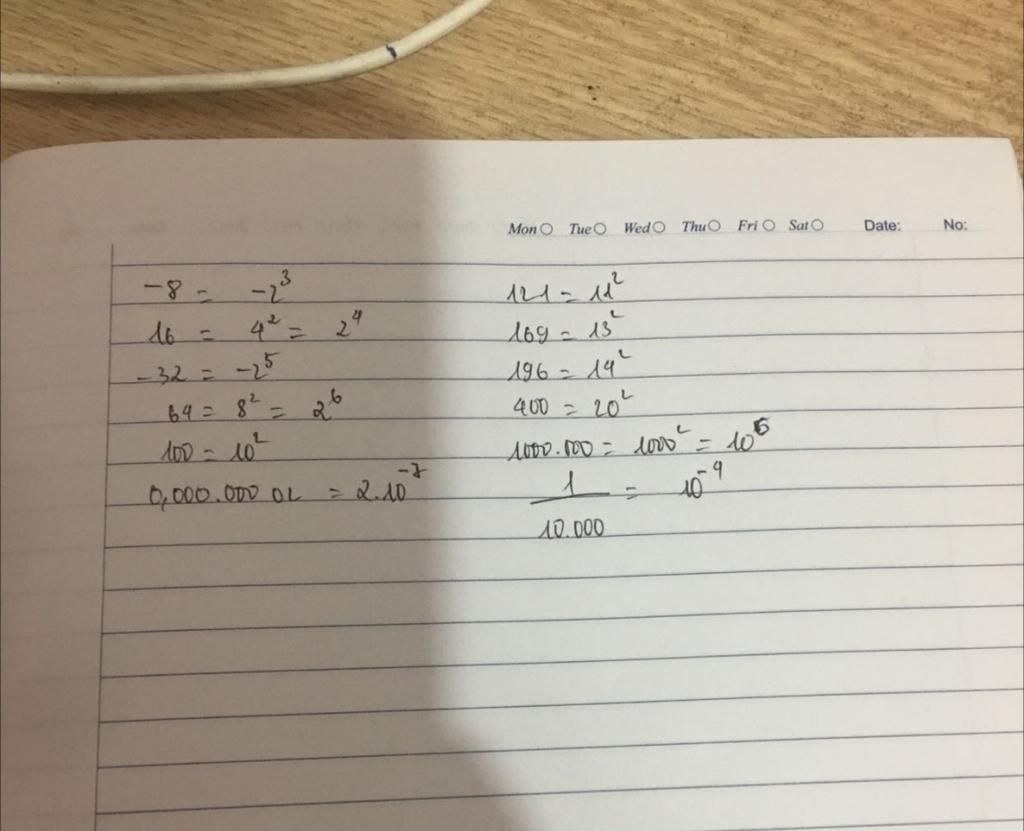 Mon Tue Wed Thu Fri Sat Date: No:
-8 = -2³
16 = 4² = 2⁴
-32 = -2⁵
64 = 8² = 2⁶
100 = 10²
0,000.000 02 = 2.10⁻⁷
121 = 11²
169 = 13²
196 = 14²
400 = 20²
1000.000 = 1000² = 10⁶
1 = 10⁻⁴
10.000